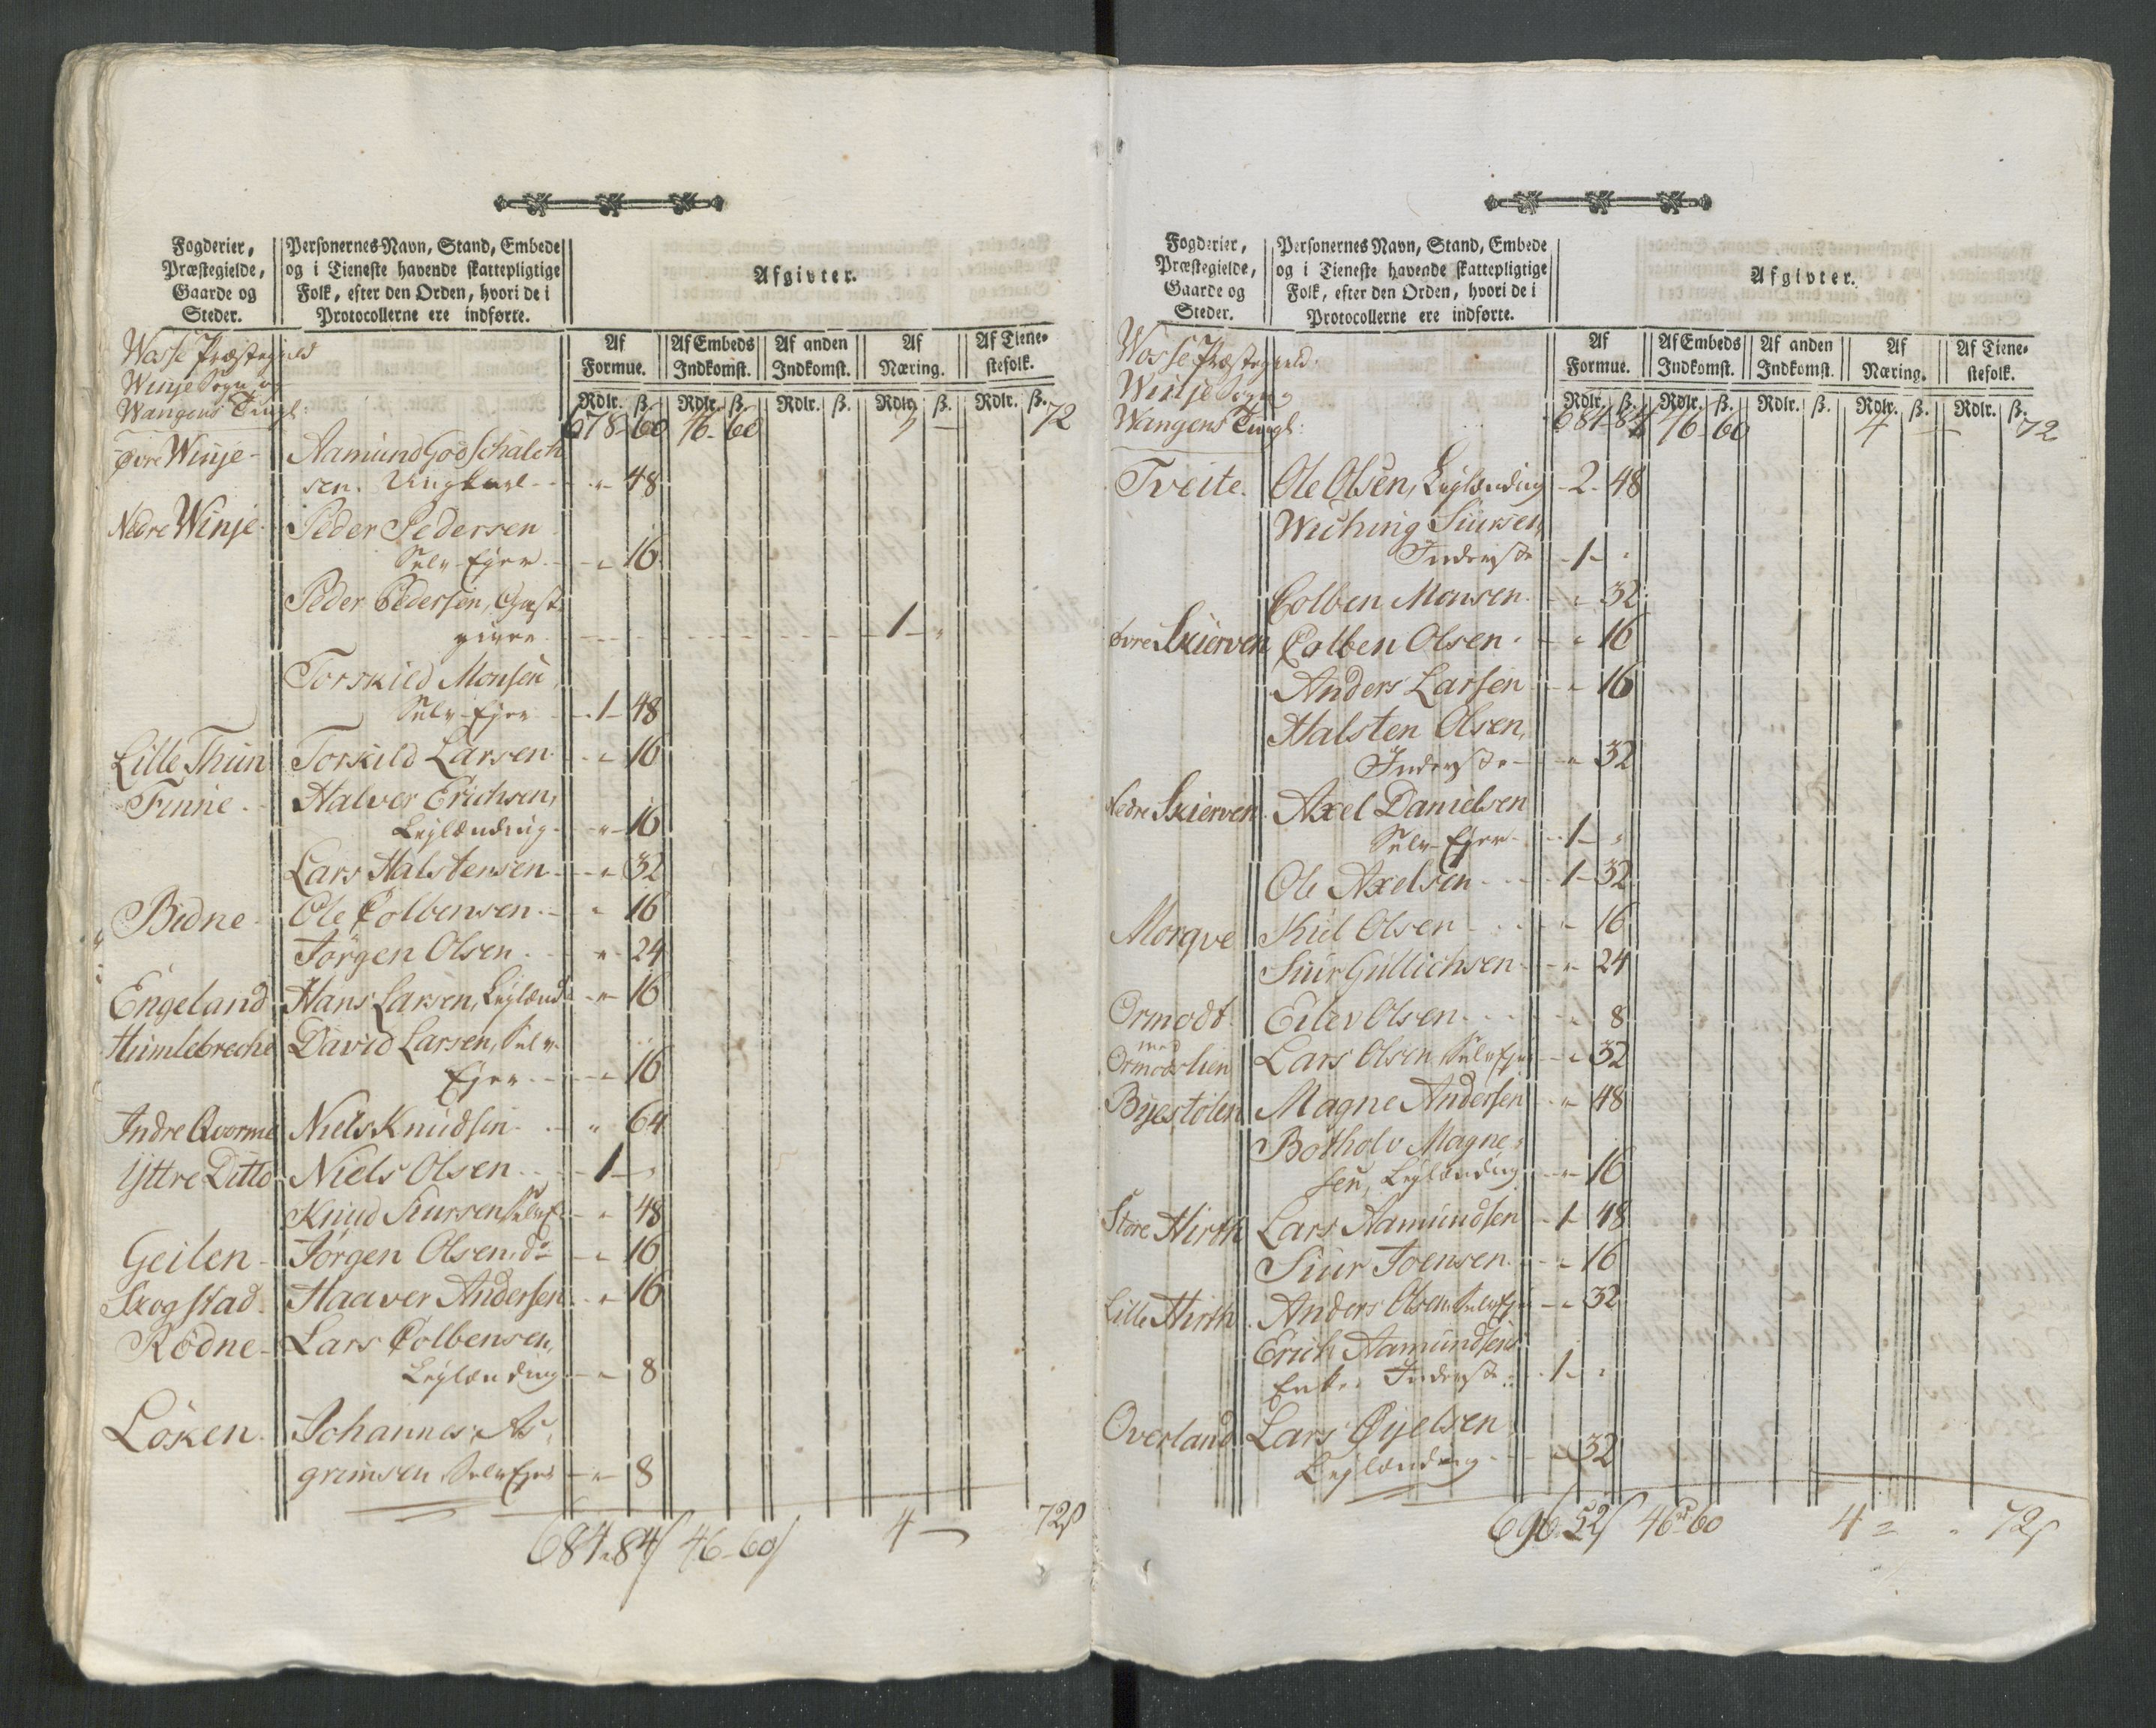 Fogderier, Præstegielde, Gaarde og Steder.
Personernes Navn, Stand, Embede og i Tieneste havende skattepligtige Folk, efter den Orden, hvori de i Protocollerne ere indførte.
Afgivter.
Af Formue. Af Embeds Indkomst. Af anden Indkomst. Af Næring. Af Tienestefolk.
Rdlr. ß. Rdlr. ß. Rdlr. ß. Rdlr. ß. Rdlr. ß.
Wosse Præstegield
Winje Sogn og
Wangens Tingl:
678-60 46-60 3 - 72
Øvre Winje - Aamund Godschalch
sen. Ungkarl - - " 48
Nedre Winje - Peder Pedersen
Selv-Ejer - - " 16
Peder Pedersen, Gjæst-
giver - - 1 - "
Torskild Monsen,
Selv-Ejer - 1 - 48
Lille Thun Torskild Larsen - " 16
Finne - Halver Erichsen,
Leylænding - " 16
Lars Halstensen - " 32
Bidne - Ole Colbensen - " 16
Jörgen Olsen - " 24
Engeland Hans Larsen, Leylænd: - " 16
Humlebreche David Larsen, Selv-
Ejer - - " 16
Indre Qvorme Niels Knudsen - " 64
Yttre Ditto Niels Olsen - 1 - "
Knud Siursen, Selv E: - " 48
Geilen - Jörgen Olsen, do - " 16
Skogstad - Haaver Andersen - " 16
Rödne - Lars Colbensen,
Leylænding - " 8
Löken - Johannes As-
grimsen Selv Ejer - " 8
684. 84ß 46 - 60ß 4 - 72ß
Fogderier, Præstegielde, Gaarde og Steder.
Personernes Navn, Stand, Embede og i Tieneste havende skattepligtige Folk, efter den Orden, hvori de i Protocollerne ere indførte.
Afgivter.
Af Formue. Af Embeds Indkomst. Af anden Indkomst. Af Næring. Af Tienestefolk.
Rdlr. ß. Rdlr. ß. Rdlr. ß. Rdlr. ß. Rdlr. ß.
Wosse Præstegield:
Winje Sogn og
Wangens Tingl:
684-84 46-60 4 - 72
Tveite. Ole Olsen, Leylænding - 2 - 48
Wiching Siursen,
Inderste - 1 - "
Colben Monsen - " 32
Øvre Skierven Colben Olsen - " 16
Anders Larsen - " 16
Halsten Olsen,
Inderste - " 32
Nedre Skierven Axel Danielsen
Selv-Ejer - 1 - "
Ole Axelsen - 1 - 32
Morqve Kiel Olsen - " 16
Siur Gullichsen - " 24
Ormodt Eilev Olsen - " 8
med
Ormodslien Lars Olsen, Selv Ejer - " 32
Byestölen Magne Andersen - " 48
Botholv Magne-
sen, Leylænding - " 16
Store Hirth Lars Aamundsen - 1 - 48
Siur Joensen - " 16
Lille Hirth Anders Olsen, Selv Ejer - " 32
Erich Aamundsens
Enke, Inderste - 1 - "
Overland Lars Öyelsen
Leylænding - " 32
696. 52ß 46 60 4 = " 72ß